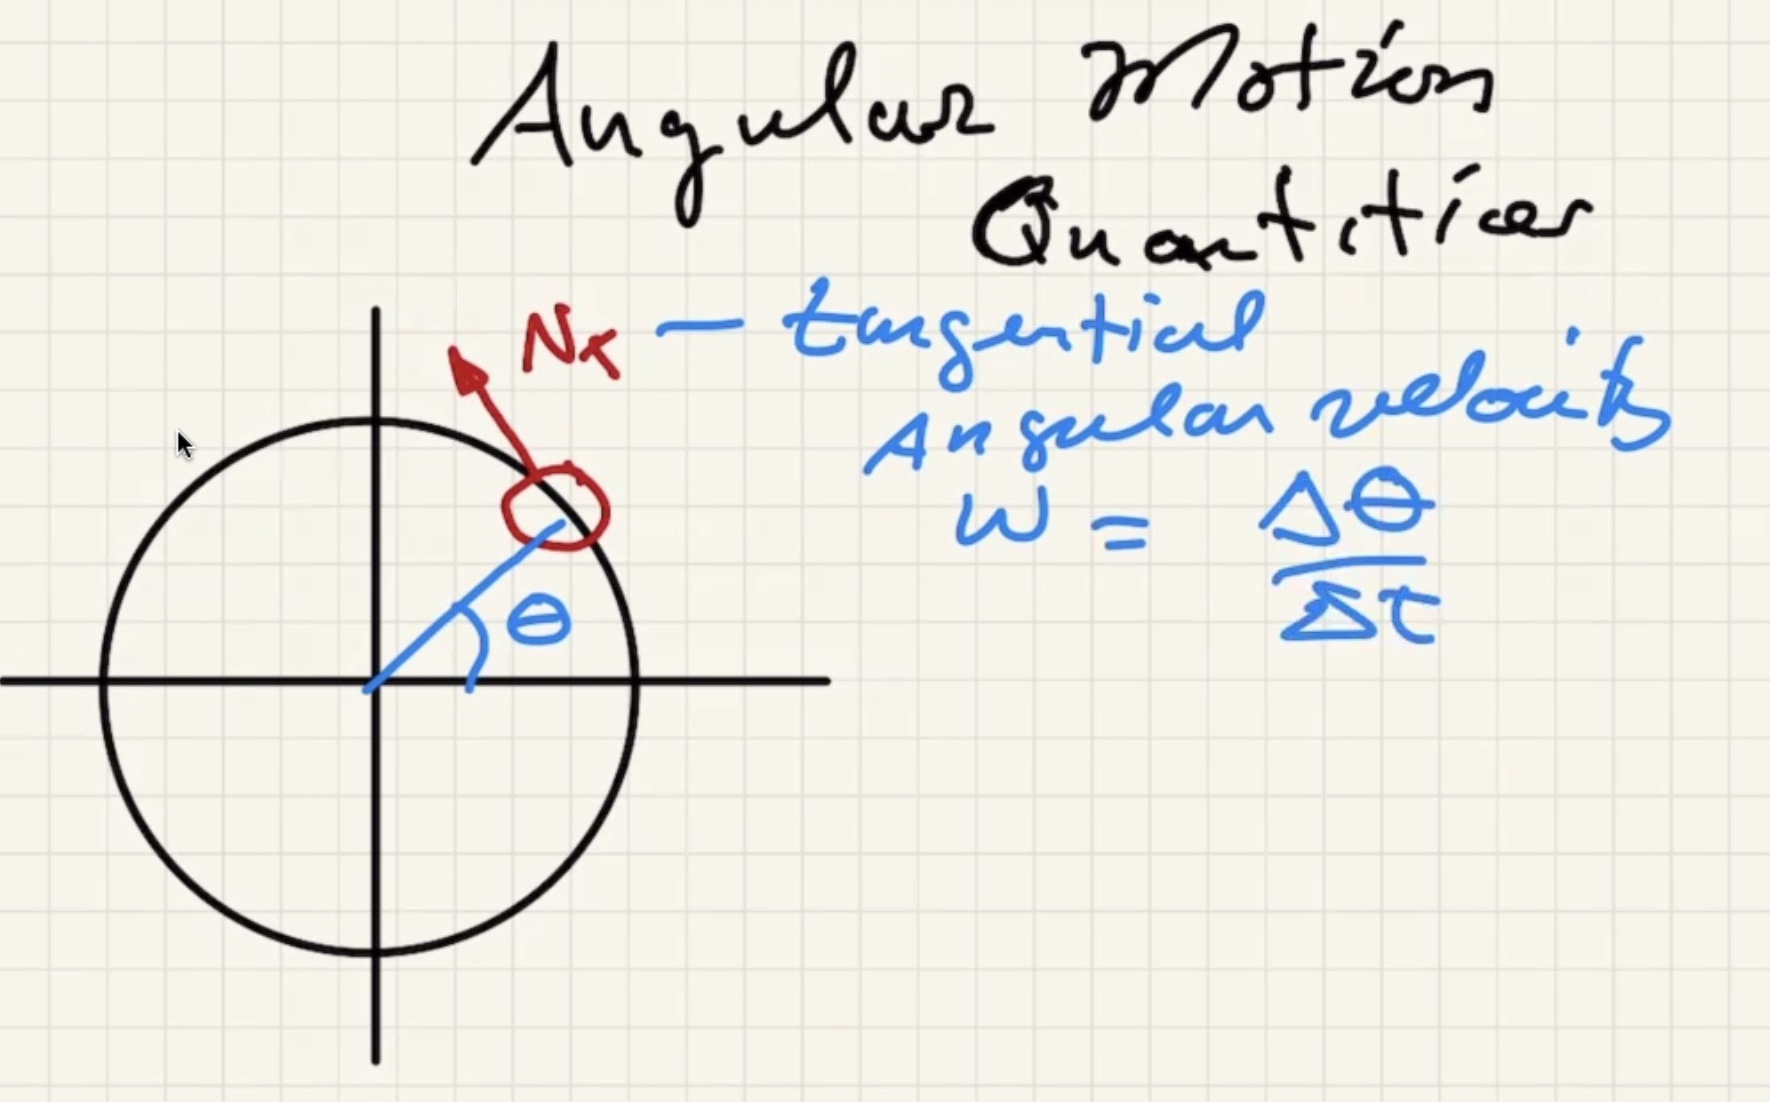 Angular Motion
Quantities
N_t — tangential
Angular velocity
ω = Δθ/Δt
θ